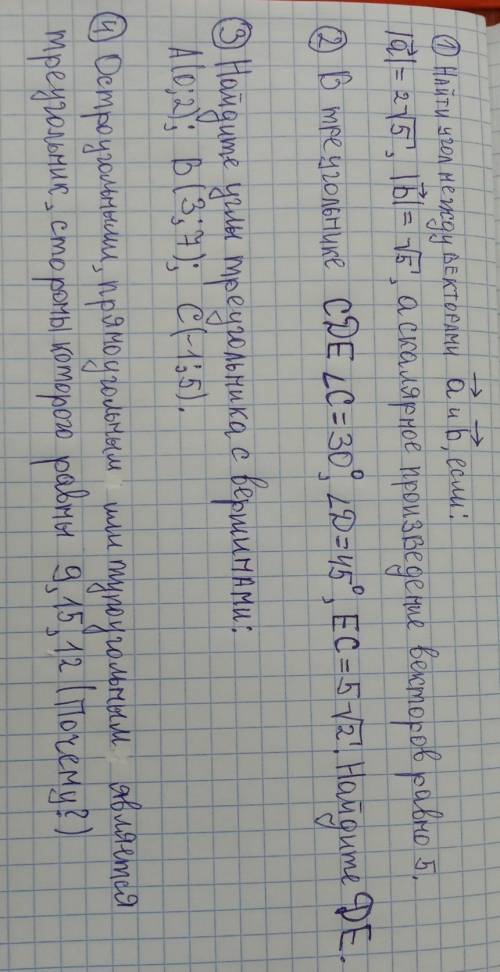 ① Найти угол между векторами a⃗ и b⃗, если:
|a⃗| = 2√5, |b⃗| = √5, а скалярное произведение векторов равно 5.
② В треугольнике CDE ∠C = 30°, ∠D = 45°, EC = 5√2. Найдите DE.
③ Найдите углы треугольника с вершинами:
A(0; 2); B(3; 7); C(-1; 5).
④ Остроугольным, прямоугольным или тупоугольным является
треугольник, стороны которого равны 9, 15, 12 (Почему?)